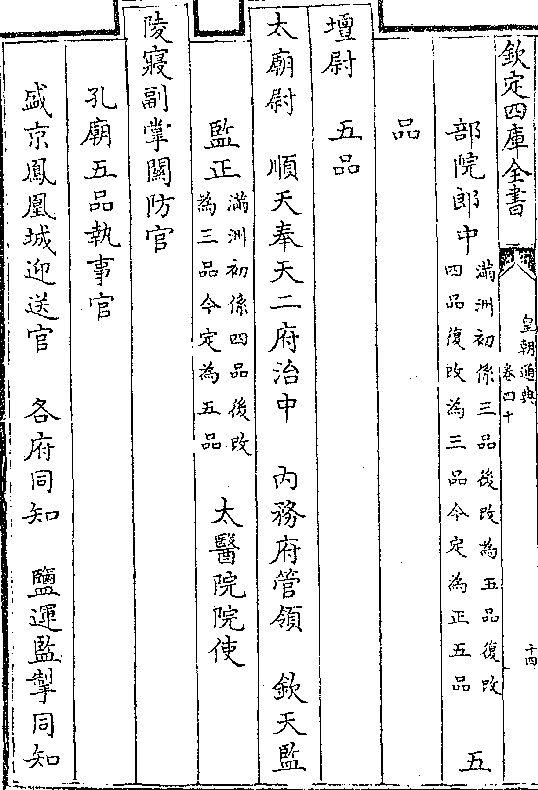 欽定四庫全書
皇朝通典
卷四十
十四
部院郎中 滿洲初係三品後改為五品復改
四品復改為三品今定為正五品 五
品
壇尉 五品
太廟尉 順天奉天二府治中 內務府管領 欽天監
監正 滿洲初係四品後改
為三品今定為五品 太醫院院使
陵寢副掌關防官
孔廟五品執事官
盛京鳳凰城迎送官 各府同知 鹽運監掣同知